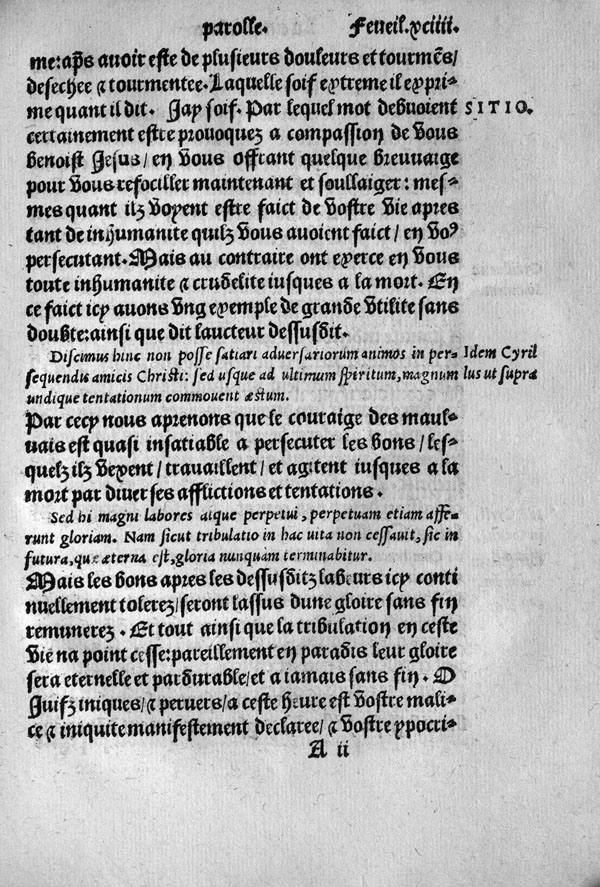 parolle. Feueil.xciiii.
me:ap̃s auoir este de plusieurs douleurs et tourmẽs/
desechee & tourmentee. Laquelle soif extreme il expri-
me quant il dit. Jay soif. Par lequel mot debuoient SITIO.
certainement estre prouoquez a compassion de vous
benoist Jesus/ en vous offrant quelque breuuaige
pour vous refociller maintenant et soullaiger: mes-
mes quant ilz voyent estre faict de vostre vie apres
tant de inhumanite quilz vous auoient faict/ en voꝰ
persecutant. Mais au contraire ont exerce en vous
toute inhumanite & crudelite iusques a la mort. En
ce faict icy auons vng exemple de grande vtilite sans
doubte: ainsi que dit laucteur dessusdit.
Discimus hinc non posse satiari adversariorum animos in per- Idem Cyril
sequendis amicis Christi: sed usque ad ultimum spiritum, magnum lus ut supra
undique tentationum commouent æstum.
Par cecy nous aprenons que le couraige des maul-
uais est quasi insatiable a persecuter les bons/ les-
quelz ilz vexent/ trauaillent/ et agitent iusques a la
mort par diuerses afflictions et tentations.
Sed hi magni labores atque perpetui, perpetuam etiam affe-
runt gloriam. Nam sicut tribulatio in hac uita non cessauit, sic in
futura, quæ æterna est, gloria nunquam terminabitur.
Mais les bons apres les dessusditz labeurs icy conti
nuellement tolerez/ seront lassus dune gloire sans fin
remunerez. Et tout ainsi que la tribulation en ceste
vie na point cesse: pareillement en paradis leur gloire
sera eternelle et pardurable/ et a iamais sans fin. O
Juifz iniques/ & peruers/ a ceste heure est vostre mali-
ce & iniquite manifestement declaree/ & vostre ypocri-
A ii